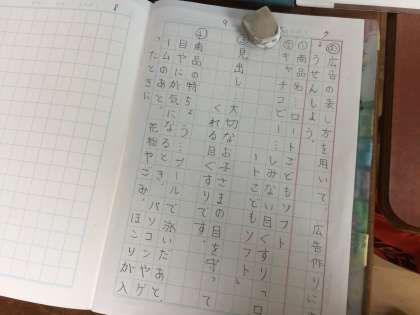 8
9
ク
め 広告の表し方を用いて、広告作りに
ちょうせんしよう。
① 商品名…ロートこどもソフト
② キャッチコピー…しみない目ぐすり「ロ
ートこどもソフト」
③ 見出し 大切なお子さまの目を守って
くれる目ぐすりです。
④ 商品の特ちょう…プールで泳いだあと、
目やにが気になるとき、パソコンやゲ
ームのあと、花粉やごみ、ほこりが入
ったときに